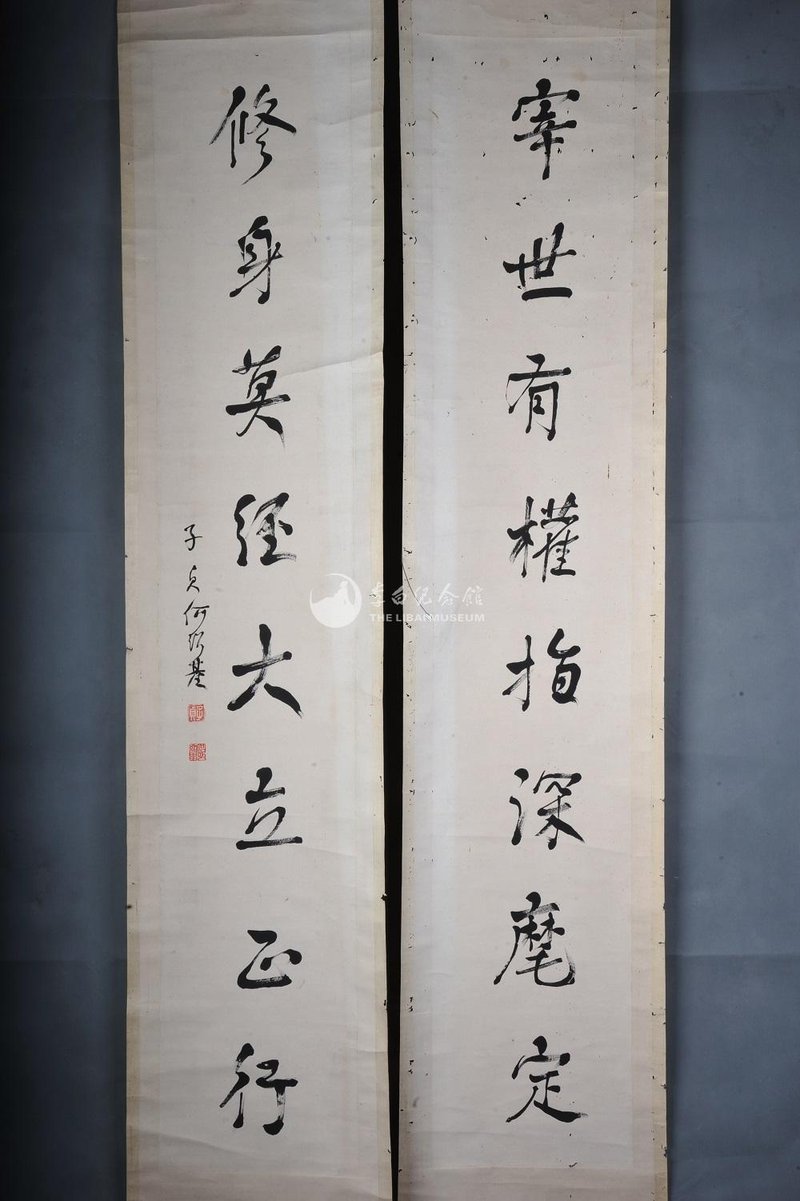 宰世有權指深麾定
修身莫經大立正行
子貞何紹基
李白紀念館
THE LIBAI MUSEUM